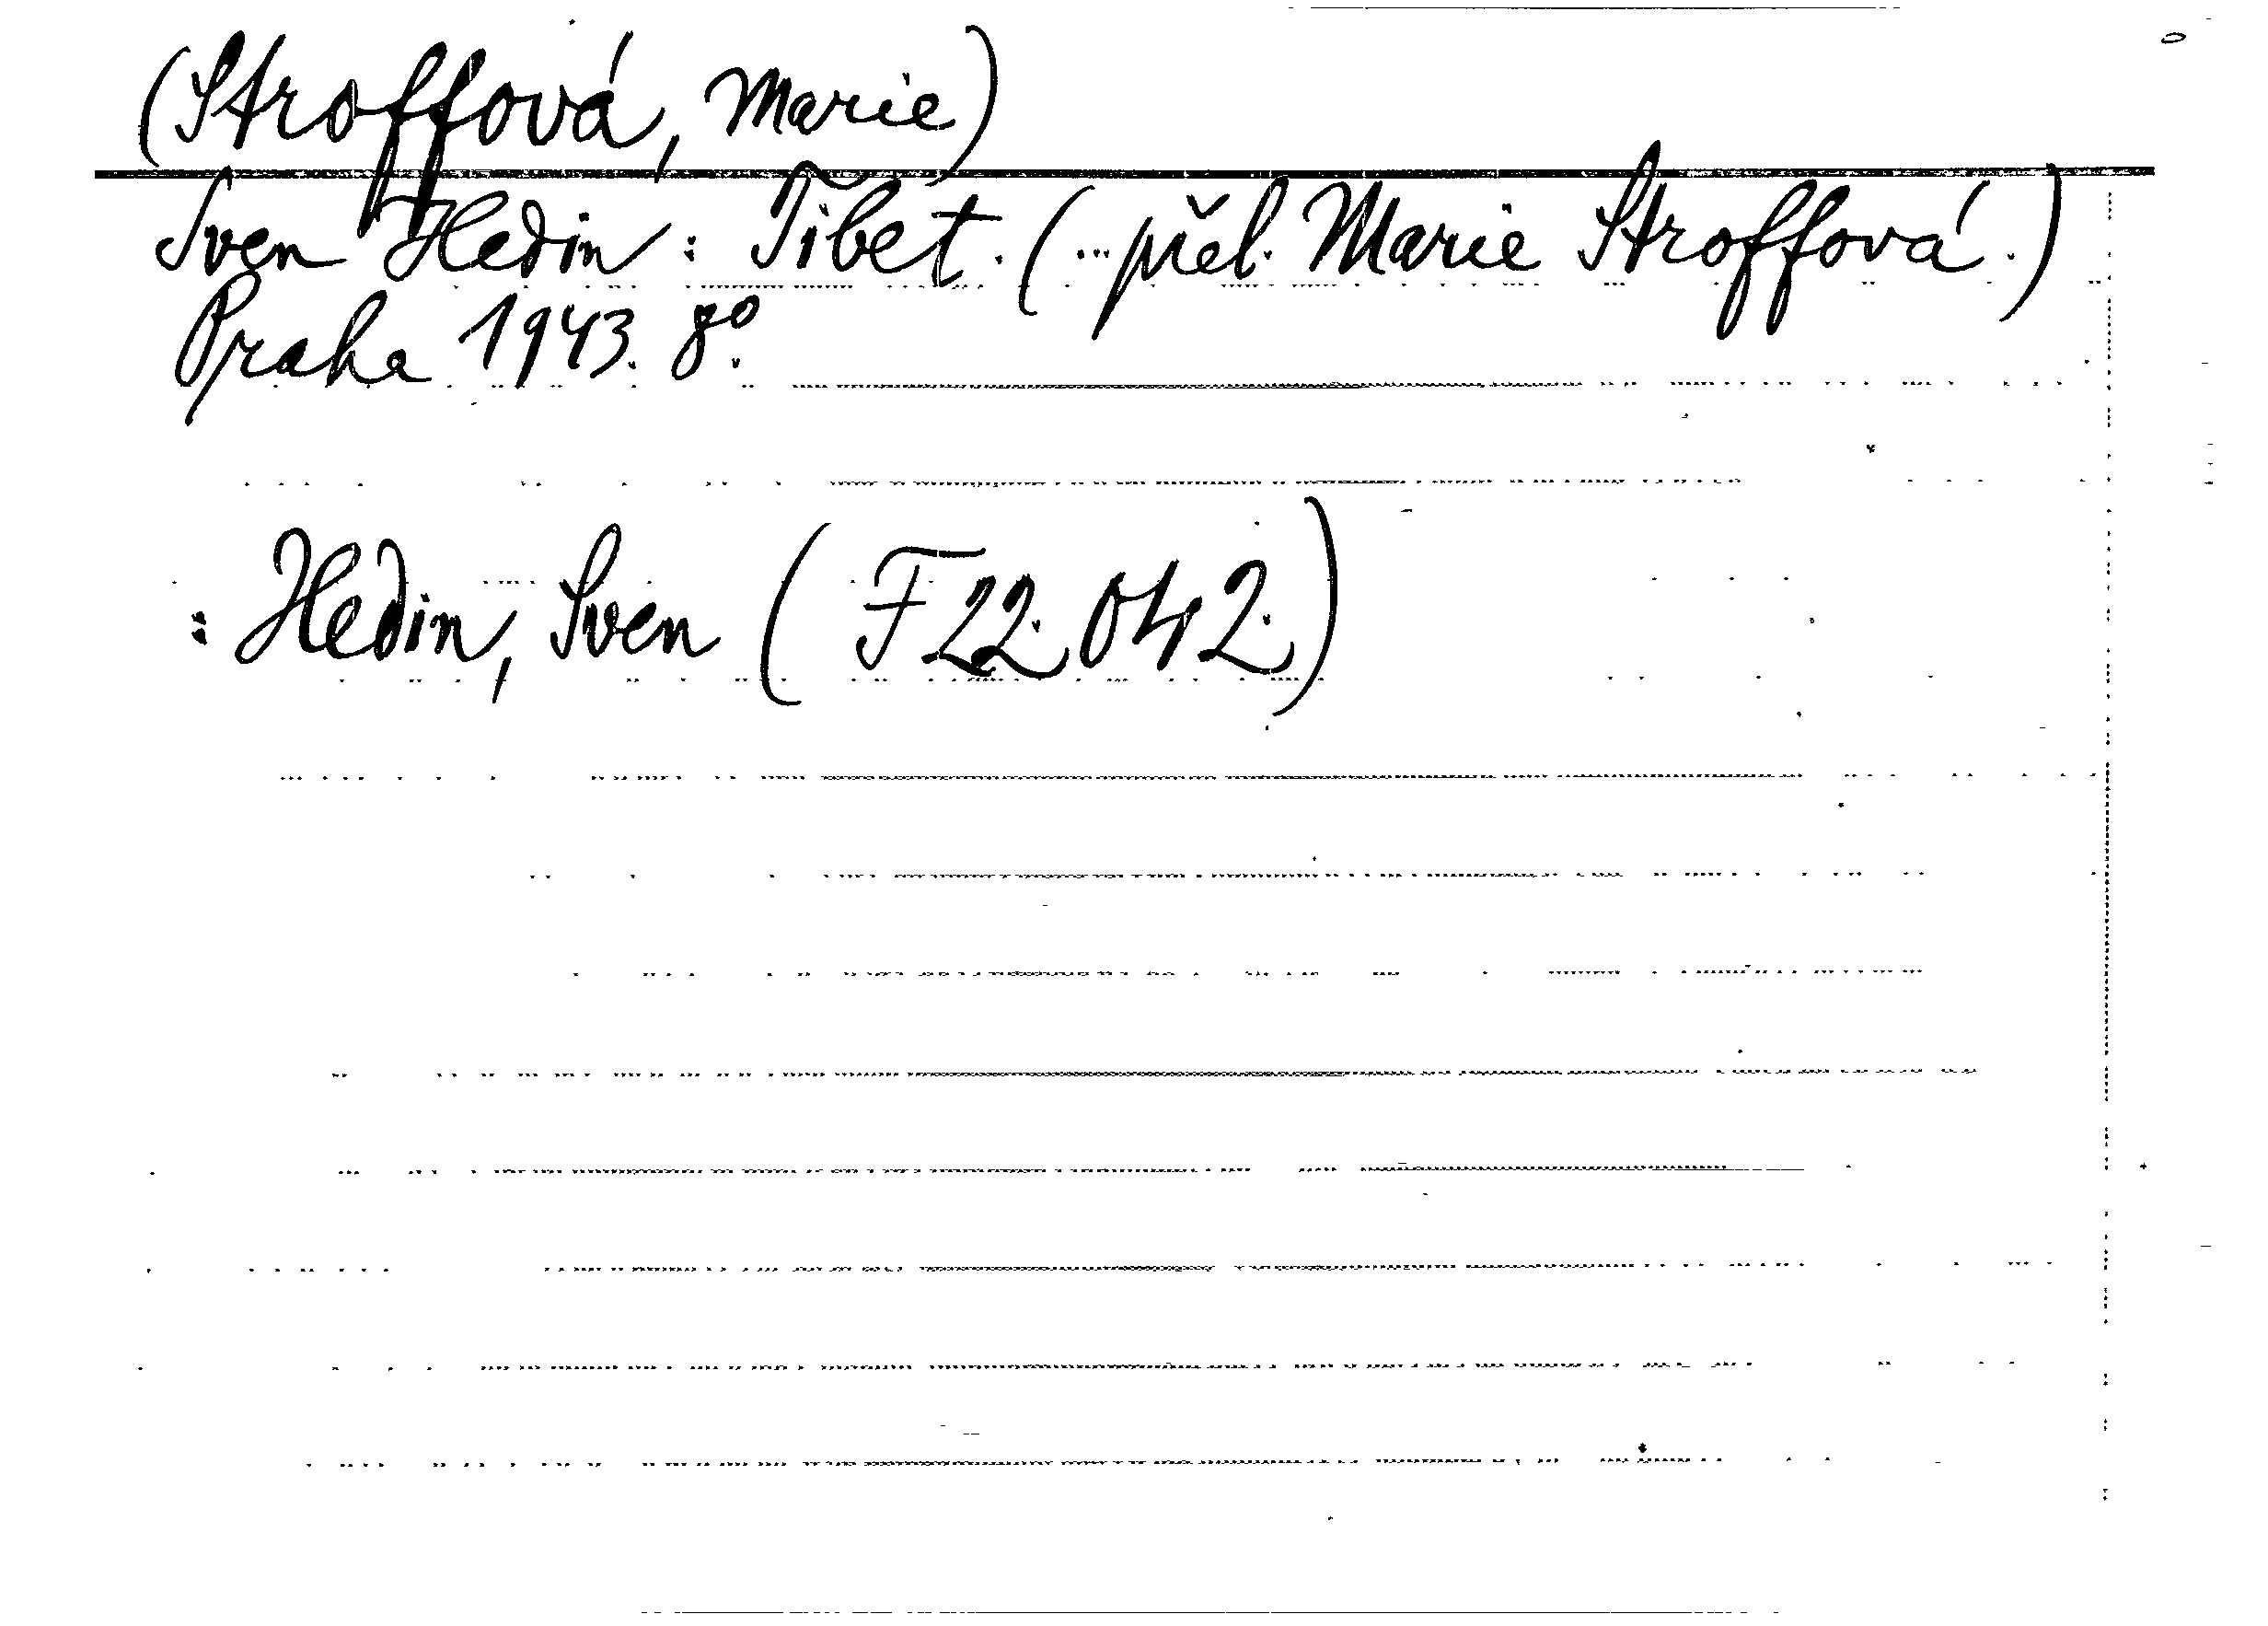 (Stroffová, Marie)
Sven Hedin: Tibet. (...přel. Marie Stroffová.)
Praha 1943. 8º.
: Hedin, Sven (F 22.042.)